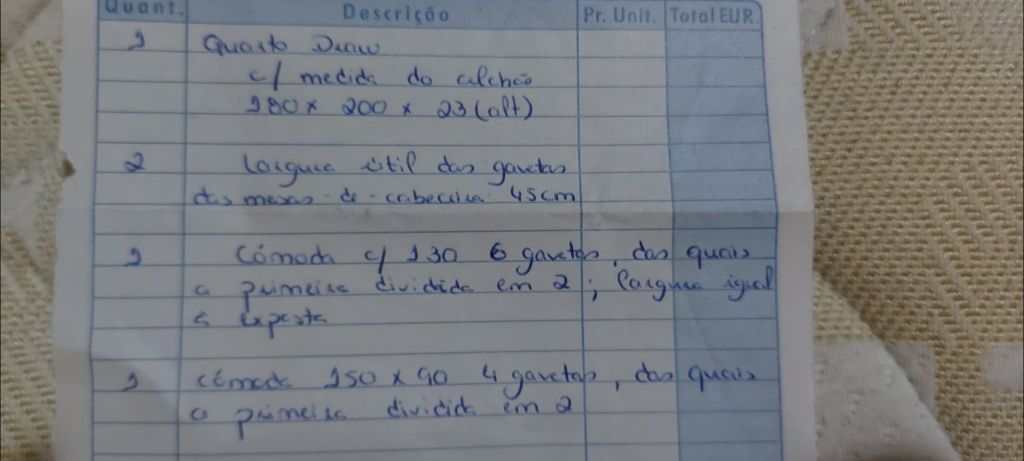 Quant. Descrição Pr. Unit. Total EUR.
1 Quarto Draw
c/ medida do colchão
180 x 200 x 23 (alt)
2 Largura útil das gavetas
das mesas-de-cabeceira 45cm
1 Cómoda c/ 130 6 gavetas, das quais
a primeira dividida em 2; largura igual
à exposta
1 cómoda 150 x 90 4 gavetas, das quais
a primeira dividida em 2